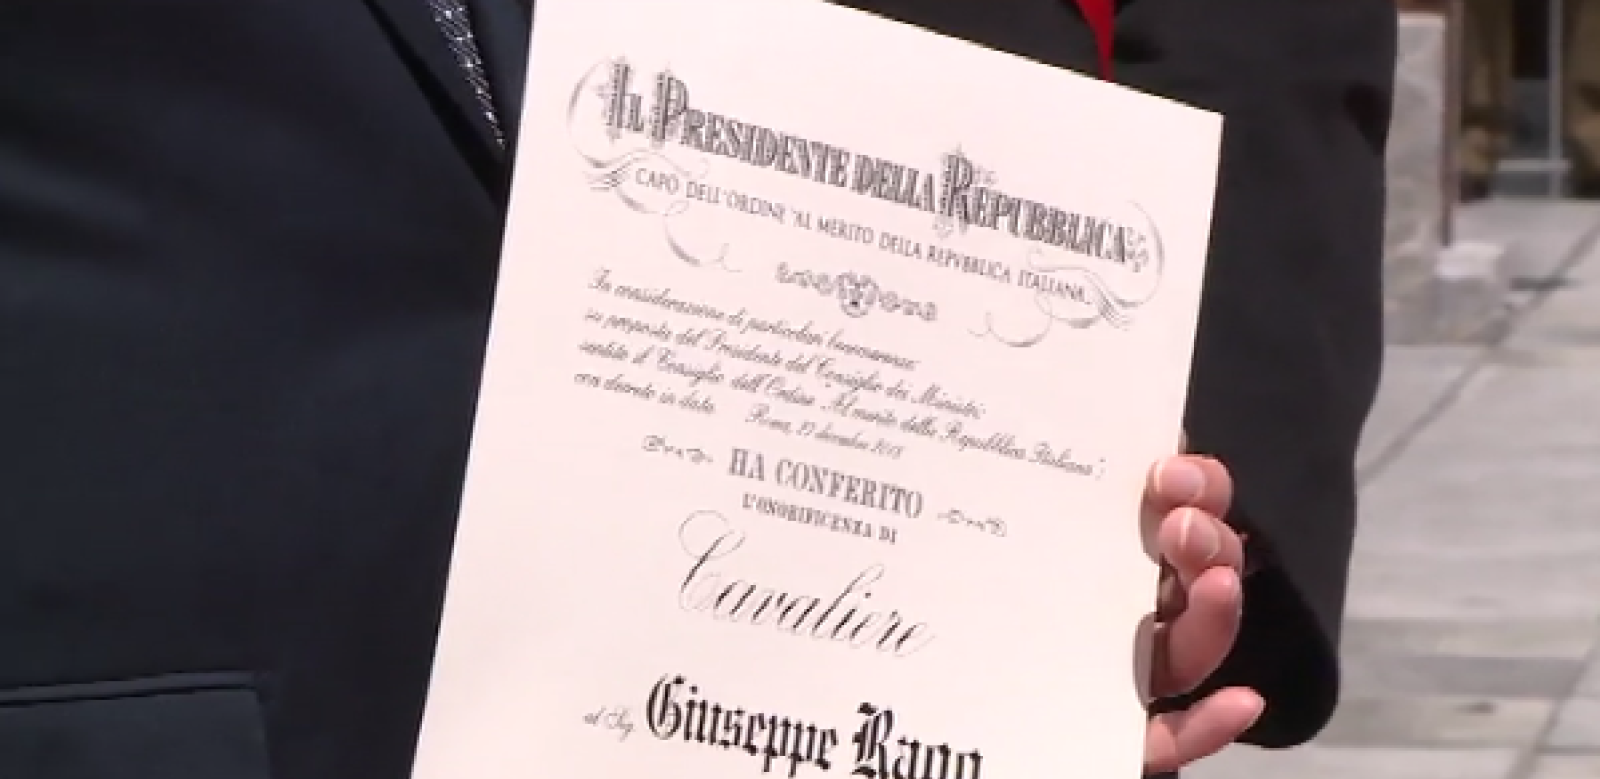 Il Presidente della Repubblica
CAPO DELL'ORDINE "AL MERITO DELLA REPVBBLICA ITALIANA"
In considerazione di particolari benemerenze;
su proposta del Presidente del Consiglio dei Ministri;
sentito il Consiglio dell'Ordine "Al merito della Repubblica Italiana";
con decreto in data Roma, 27 dicembre
HA CONFERITO
L'ONORIFICENZA DI
Cavaliere
al Sig. Giuseppe